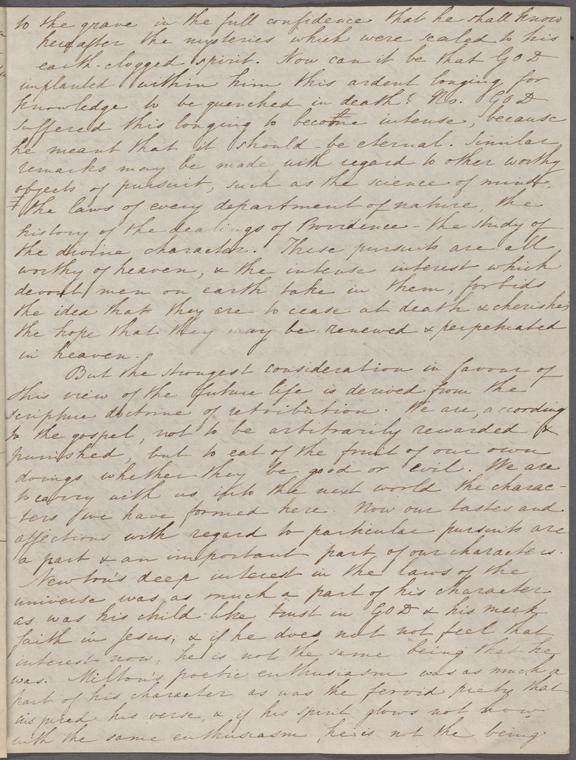 to the grave in the full confidence that he shall know
hereafter the mysteries which were sealed to his
earth-clogged spirit. Now can it be that GOD
implanted within him this ardent longing for
knowledge to be quenched in death? No. GOD
suffered this longing to become intense, because
he meant that it should be eternal. Similar
remarks may be made with regard to other worthy
objects of pursuit, such as the science of mind.
the laws of every department of nature, the
history of the dealings of Providence - the study of
the divine character. These pursuits are all
worthy of heaven, & the intense interest which
devout men on earth take in them, forbids
the idea that they are to cease at death & cherishes
the hope that they may be renewed & perpetuated
in heaven.
But the strongest consideration in favour of
this view of the future life is derived from the
scripture doctrine of retribution. We are, according
to the gospel, not to be arbitrarily rewarded &
punished, but to eat of the fruit of our own
doings whether they be good or evil. We are
to carry with us into the next world the charac-
ters we have formed here. Now our tastes and
affections with regard to particular pursuits are
a part & an important part of our characters.
Newton's deep interest in the laws of the
universe was as much a part of his character
as was his child-like trust in GOD & his meek
faith in Jesus, & if he does not not feel that
interest now, he is not the same being that he
was. Milton's poetic enthusiasm was as much a
part of his character as was the fervid piety that
inspired his verse, & if his spirit glows not now
with the same enthusiasm, he is not the being